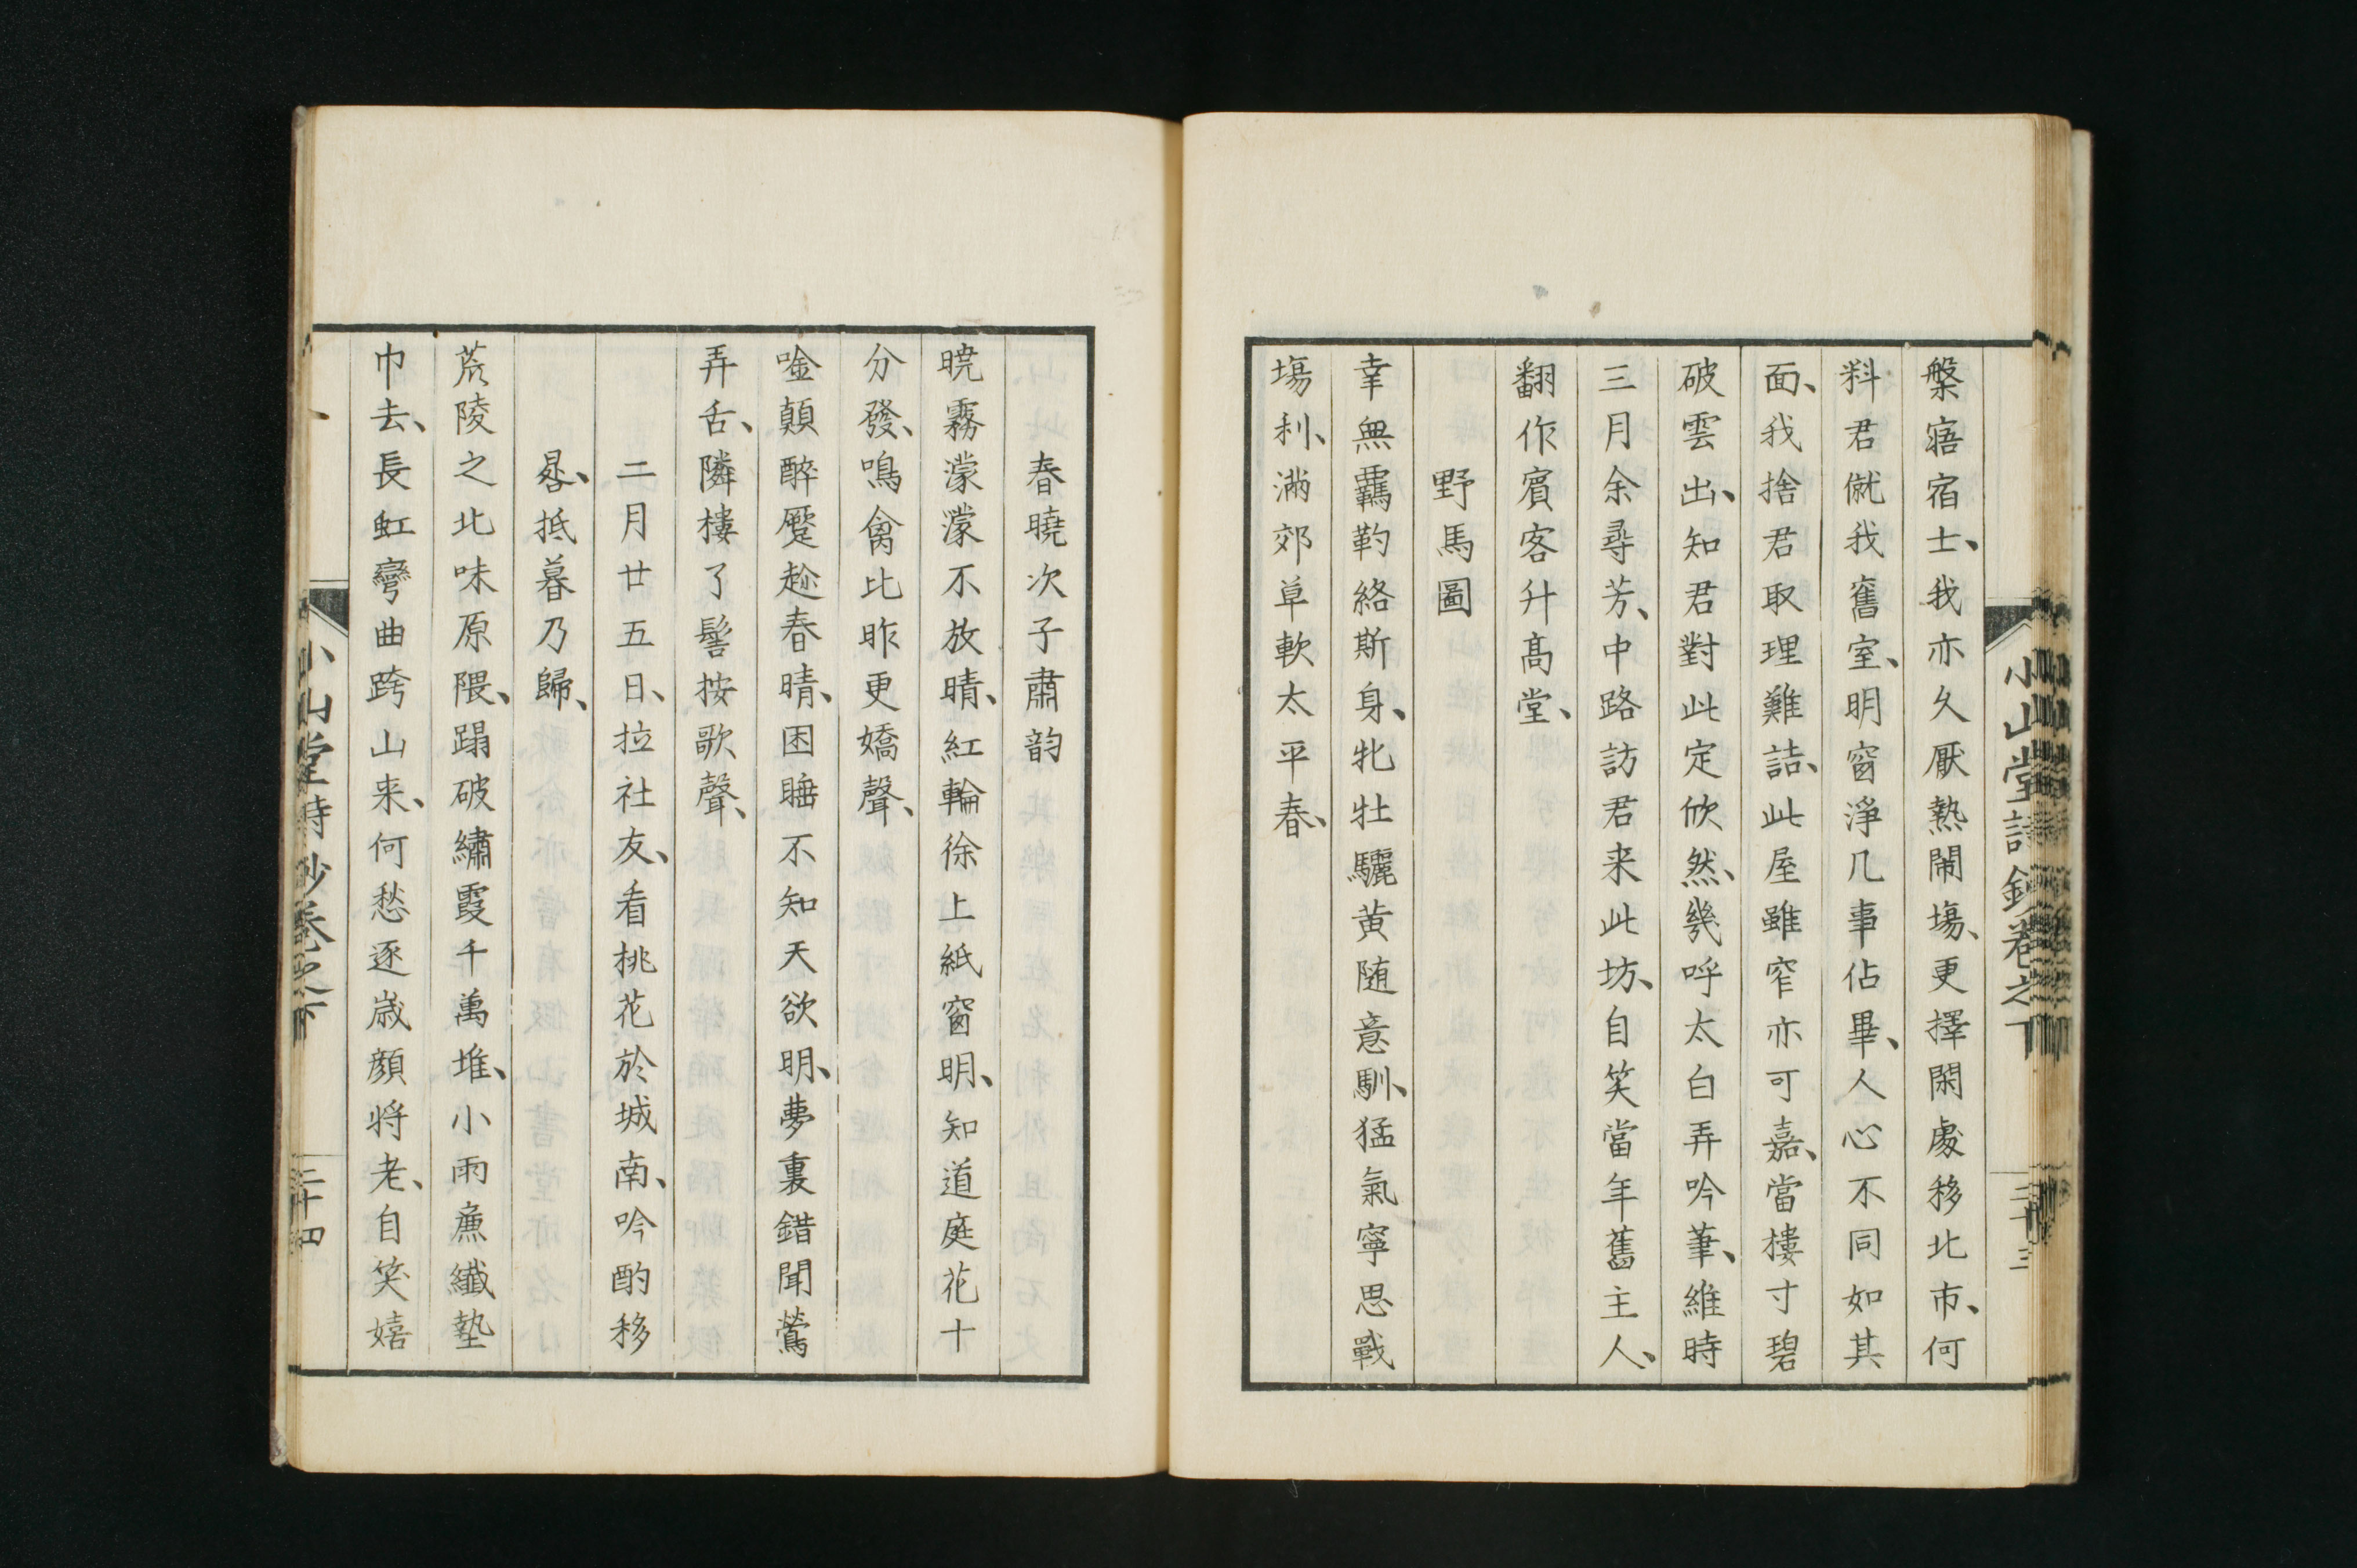 小山堂詩鈔卷之下
二十三
槃寤宿士、我亦久厭熱鬧塲、更擇閑處移北市、何
料君僦我舊室、明窗淨几事佔畢、人心不同如其
面、我捨君取理難詰、此屋雖窄亦可嘉、當樓寸碧
破雲出、知君對此定欣然、幾呼太白弄吟筆、維時
三月余尋芳、中路訪君来此坊、自笑當年舊主人、
翻作賓客升髙堂、
野馬圖
幸無羈靮絡斯身、牝牡驪黄随意馴、猛氣寧思戰
塲利、滿郊草軟太平春、
春曉次子肅韵
暁霧濛濛不放晴、紅輪徐上紙窗明、知道庭花十
分發、鳴禽比昨更嬌聲、
顛醉蹙趁春晴、困睡不知天欲明、夢裏錯聞鶯
弄舌、隣樓了髻按歌聲、
二月廿五日、拉社友、看桃花於城南、吟酌移
晷、抵暮乃歸、
荒陵之北味原隈、蹋破繡霞千萬堆、小雨䍢纖墊
巾去、長虹彎曲跨山来、何愁逐歳顔将老、自笑嬉
小山堂詩鈔卷之下
二十四